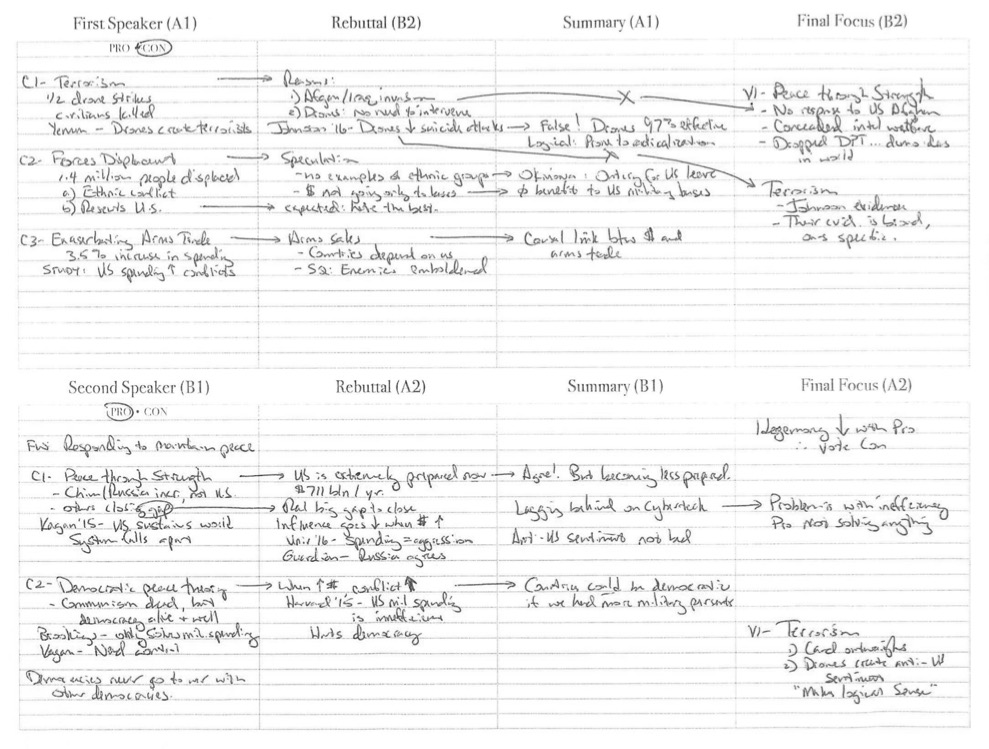 First Speaker (A1)
PRO • CON
C1- Terrorism
1/2 drone strikes
civilians killed
Yemen - Drones create terrorists
C2- Forces Displacement
1.4 million people displaced
a) Ethnic conflict
b) Resents U.S.
C3- Exaserbating Arms Trade
3.5% increase in spending
Study: US spending ↑ conflicts
Rebuttal (B2)
Reasons:
1) Afgan/Iraq invasion
2) Drones: No need to intervene
Johnson '16- Drones ↓ suicide attacks
Speculation
- no examples of ethnic groups
- $ not going only to bases
expected: hope the best.
Arms Sales
- Countries depend on us
- SQ: Enemies emboldened
Summary (A1)
False! Drones 97% effective
Logical: Prone to radicalization
Okinawa: Outcry for US leave
∅ benefit to US military bases
Causal link btw $ and
arms trade
Final Focus (B2)
V1- Peace through Strength
- No response to US Afghan
- Conceded intel welfare
- Dropped DPT... democracies
in world
Terrorism
- Johnson evidence
- Their evid. is broad,
ours specific.
Second Speaker (B1)
PRO • CON
FW: Responding to maintain peace
C1- Peace through Strength
- China/Russia incr, not U.S.
- others closing gap
Kagan '15- U.S. sustains world
System falls apart
C2- Democratic peace theory
- Communism died, but
democracy alive + well
Brookings - only solve mil. spending
Kagan- Need control
Democracies never go to war with
other democracies.
Rebuttal (A2)
US is extremely prepared now
$711 bln / yr.
Real big gap to close
Influence goes ↓ when $ ↑
'16- Spending = aggression
Guardian - Russia agrees
When ↑ $ conflict ↑
Harvard '15- US mil spending
is inefficient
Hurts democracy
Summary (B1)
Agree! But becoming less prepared.
Lagging behind on Cybertech
Anti-US sentiment not bad
Countries could be democratic
if we had more military presents
Final Focus (A2)
Hegemony ↓ with Pro
∴ Vote Con
Problem is with inefficiency
Pro not solving anything
V1- Terrorism
1) Card outweighs
2) Drones create anti-US
sentiment
"Makes logical Sense"